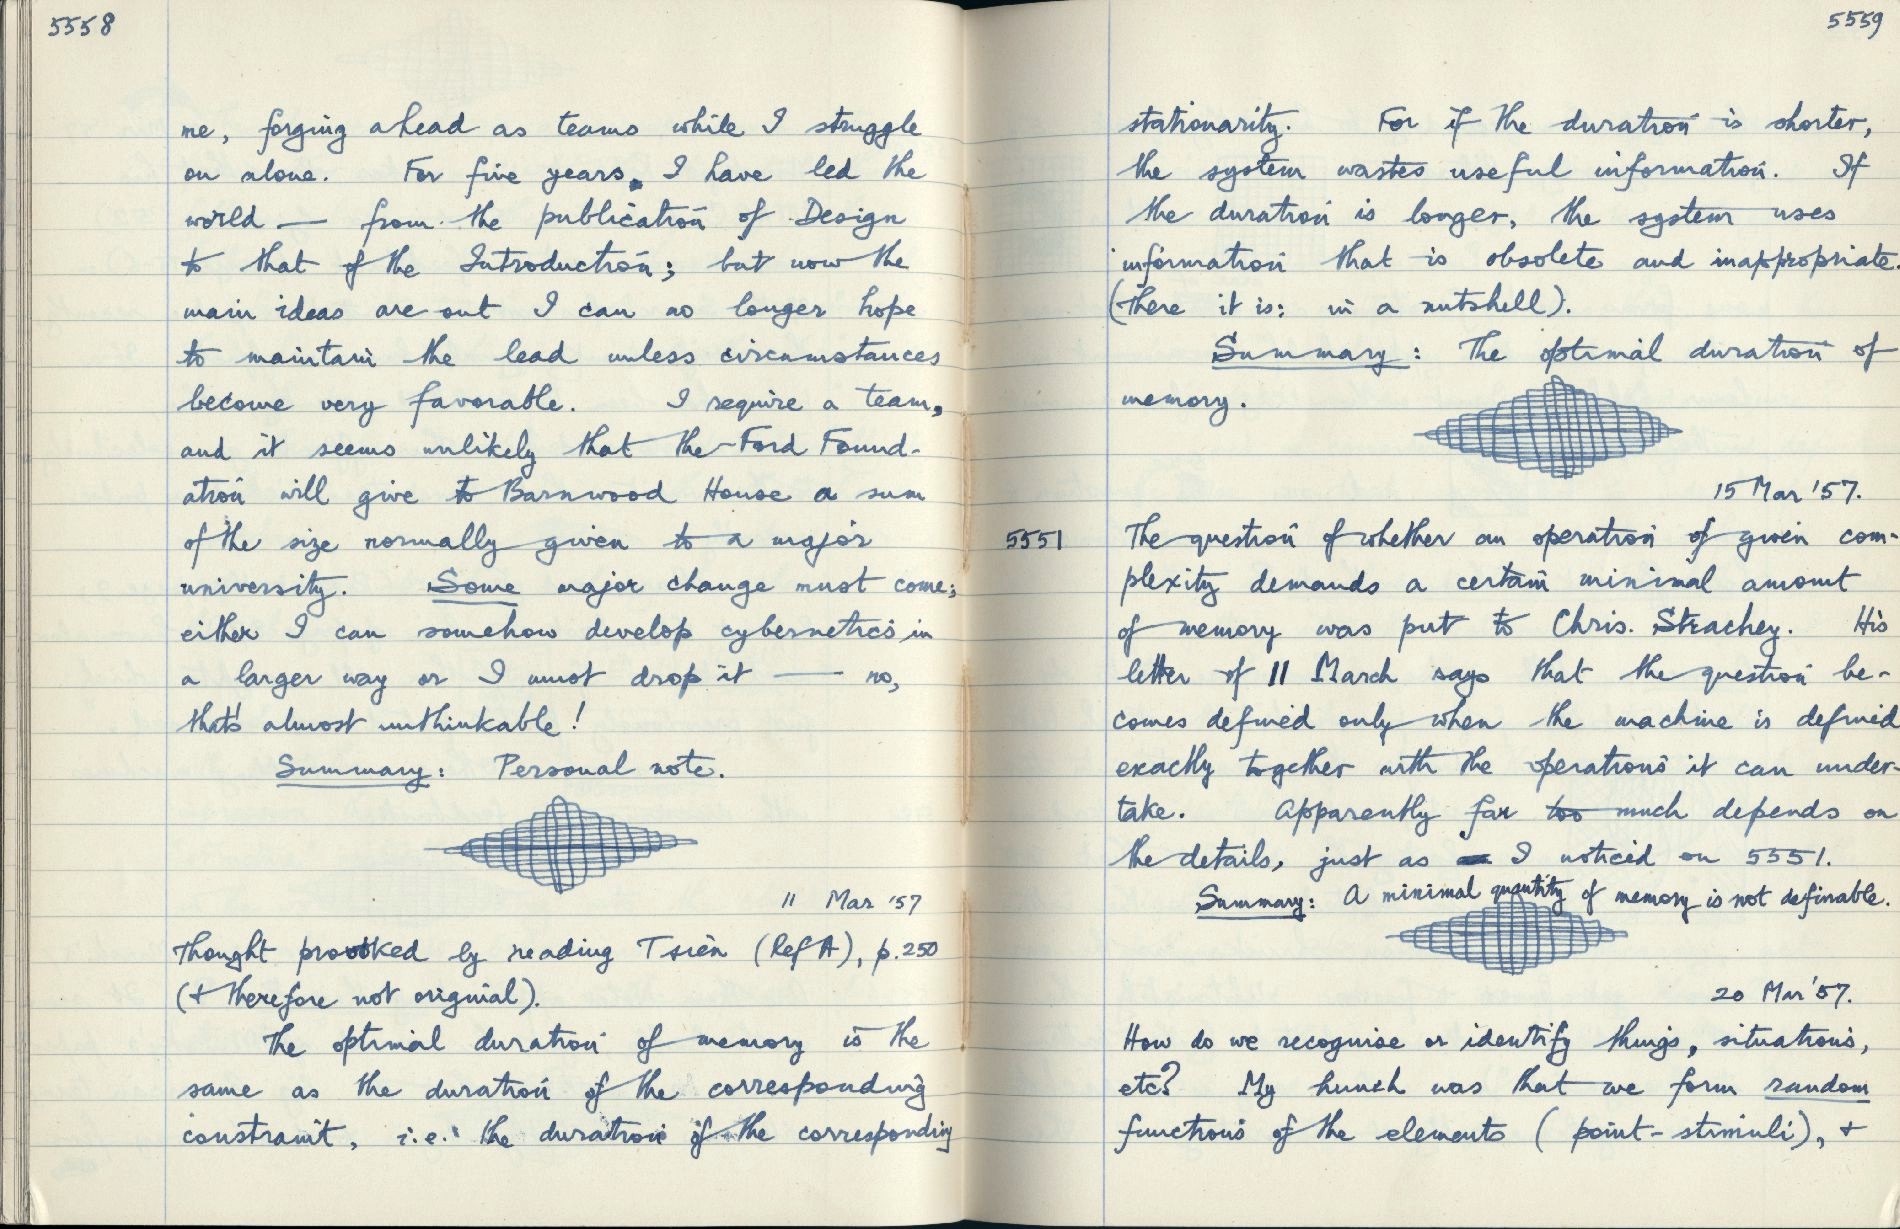 5558
me, forging ahead as teams while I struggle
on alone. For five years, I have led the
world — from the publication of Design
to that of the Introduction; but now the
main ideas are out I can no longer hope
to maintain the lead unless circumstances
become very favorable. I require a team,
and it seems unlikely that the Ford Found-
ation will give to Barnwood House a sum
of the size normally given to a major
university. Some major change must come;
either I can somehow develop cybernetics in
a larger way or I must drop it — no,
that's almost unthinkable!
Summary: Personal note.
11 Mar '57
Thought provoked by reading Tsien (Ref A), p. 250
(& therefore not original).
The optimal duration of memory is the
same as the duration of the corresponding
constraint, i.e. the duration of the corresponding
5559
stationarity. For if the duration is shorter,
the system wastes useful information. If
the duration is longer, the system uses
information that is obsolete and inappropriate.
(There it is: in a nutshell).
Summary: The optimal duration of
memory.
15 Mar '57.
5551 The question of whether an operation of given com-
plexity demands a certain minimal amount
of memory was put to Chris. Strachey. His
letter of 11 March says that the question be-
comes defined only when the machine is defined
exactly together with the operations it can under-
take. Apparently far too much depends on
the details, just as I noticed on 5551.
Summary: A minimal quantity of memory is not definable.
20 Mar '57.
How do we recognise or identify things, situations,
etc? My hunch was that we form random
functions of the elements (point-stimuli), &